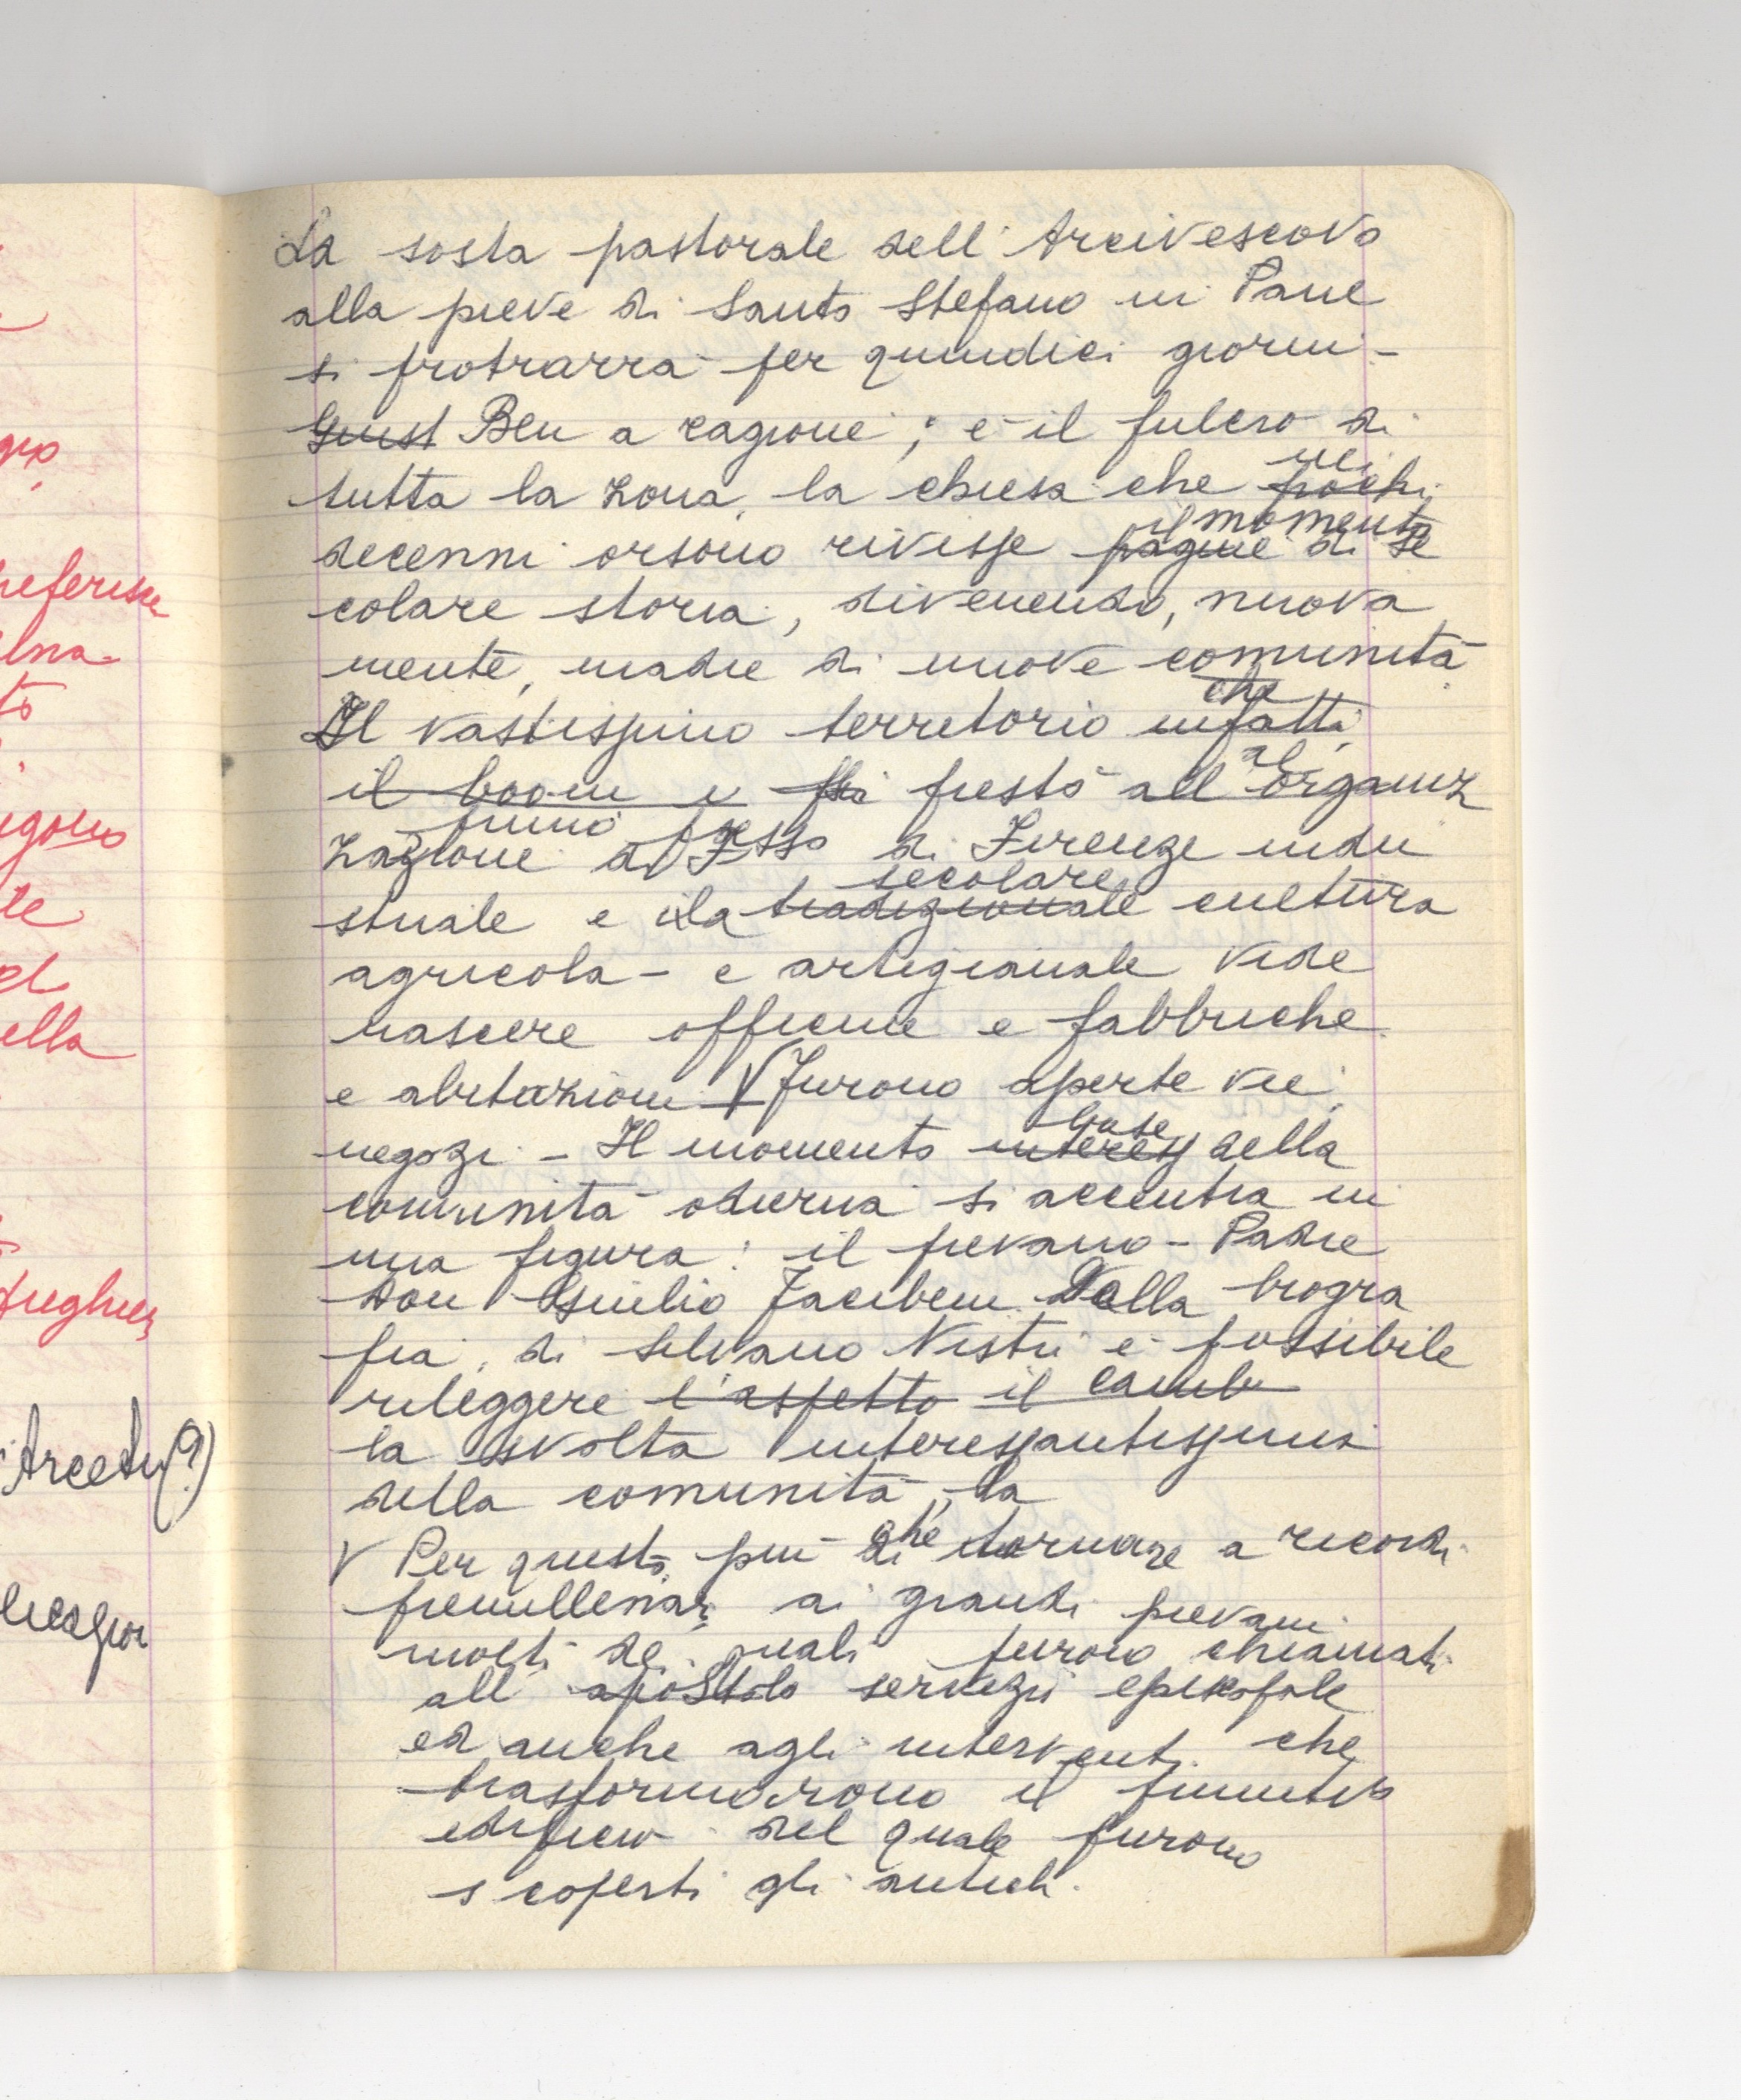 La sosta pastorale dell'Arcivescovo
alla pieve di Santo Stefano in Pane
si protrarrà per quindici giorni -
Giust Ben a ragione; è il fulcro di
tutta la zona, la chiesa che pochi
nei
decenni orsono rivisse pagine di se
il momento
colare storia, divenendo, nuova
mente, madre di nuove comunità
Il vastissimo territorio infatti,
che
il boom e prestò all'organiz
zazione di Firenze indu
secolare
striale e la tradizionale cultura
agricola - e artigianale vide
nascere officine e fabbriche
e abitazioni V Furono aperte vie,
negozi - Il momento interess della
base
comunità odierna si accentra in
una figura: il pievano - Padre
Don Giulio Facibeni Dalla biogra
fia, di Silvano Nistri è possibile
rileggere l'aspetto il camb
la svolta interessantissima
della comunità, la
V Per questo, più che di tornare a ricordi
premillenari, ai grandi pievani
molti dei quali furono chiamati
all apostolo servizio episcopale
ed anche agli interventi che
trasformarono il primitivo
edificio del quale furono
scoperti gli antichi
preferisce
igono
te
el
ella
Arcetri(?)